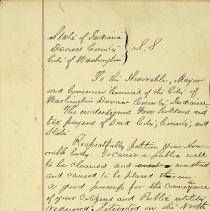 State of Indiana
Daviess County } S.S
City of Washington
To the Honorable, Mayor
and Common Council of the City of
Washington Daviess County, Indiana,
The undersigned Free holders and
tax payers of Said City, County, and
State
Respectfully petition your Hon-
orable body. To cause a public well
to be cleansed and
and caused to be placed therein
a good pump for the convenience
of your Citizens and Public utility
required, situated on the North